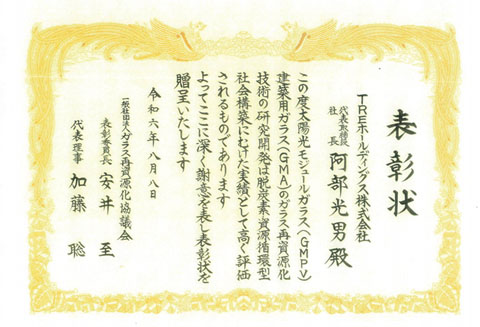 表彰状
TREホールディングス株式会社
代表取締役
社長
阿部光男殿
この度太陽光モジュールガラス(GMPV)
建築用ガラス(GMA)のガラス再資源化
技術の研究開発は脱炭素資源循環型
社会構築にむけた実績として高く評価
されるものであります
よってここに深く謝意を表し表彰状を
贈呈いたします
令和六年八月八日
一般社団法人ガラス再資源化協議会
表彰委員長 安井 至
代表理事 加藤 聡